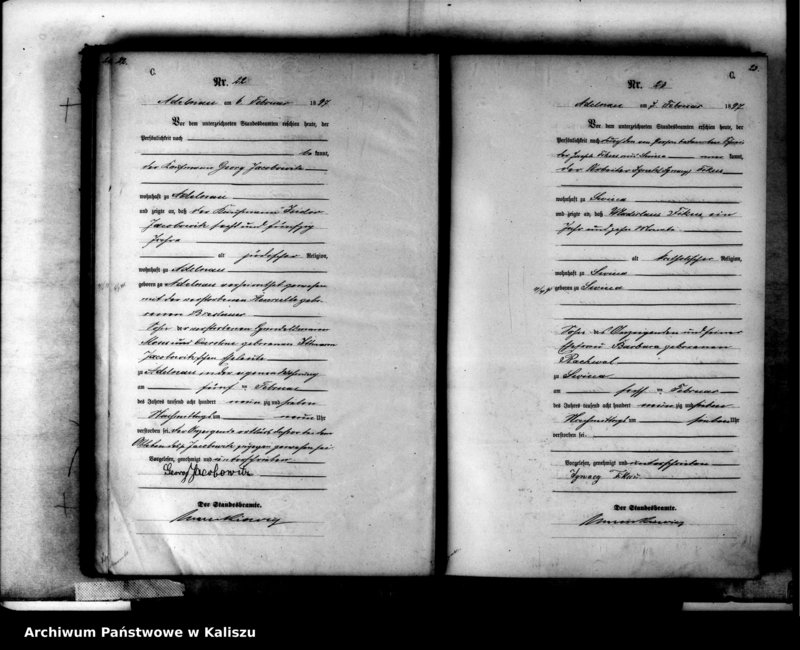 22.
C.
Nr. 22
Adelnau am 6. Februar 1897
Vor dem unterzeichneten Standesbeamten erschien heute, der
Persönlichkeit nach
be kannt,
der Kaufmann Georg Jacobowitz
wohnhaft zu Adelnau
und zeigte an, daß der Kaufmann Isidor
Jacobowitz sechs und fünfzig
Jahre
alt jüdischer Religion,
wohnhaft zu Adelnau
geboren zu Adelnau verheirathet gewesen
mit der verstorbenen Henriette gebo
renen Breslauer
Sohn der verstorbenen Handelsmann
Moses und Caroline geborenen
Jacobowitz'schen Eheleute
zu Adelnau in der eigenen Wohnung
am fünf ten Februar
des Jahres tausend acht hundert neunzig und sieben
Nachmittags um neun Uhr
verstorben sei, der Anzeigende erklärt, daß er bei dem
Ableben des Jacobowitz zugegen gewesen sei.
Vorgelesen, genehmigt und unterschrieben
Georg Jacobowitz
Der Standesbeamte.
23.
C.
Nr. 23
Adelnau am 7. Februar 1897
Vor dem unterzeichneten Standesbeamten erschien heute, der
Persönlichkeit nach
kannt,
der Arbeiter Ignatz
wohnhaft zu
und zeigte an, daß Wladislaus ein
Jahr und zehn Monate
alt katholischer Religion,
wohnhaft zu
geboren zu
Sohn des Anzeigenden und seiner
Ehefrau Barbara geborenen
zu
am sechs ten Februar
des Jahres tausend acht hundert neunzig und sieben
Nachmittags um Uhr
verstorben sei.
Vorgelesen, genehmigt und unterschrieben
Ignacy
Der Standesbeamte.
Archiwum Państwowe w Kaliszu